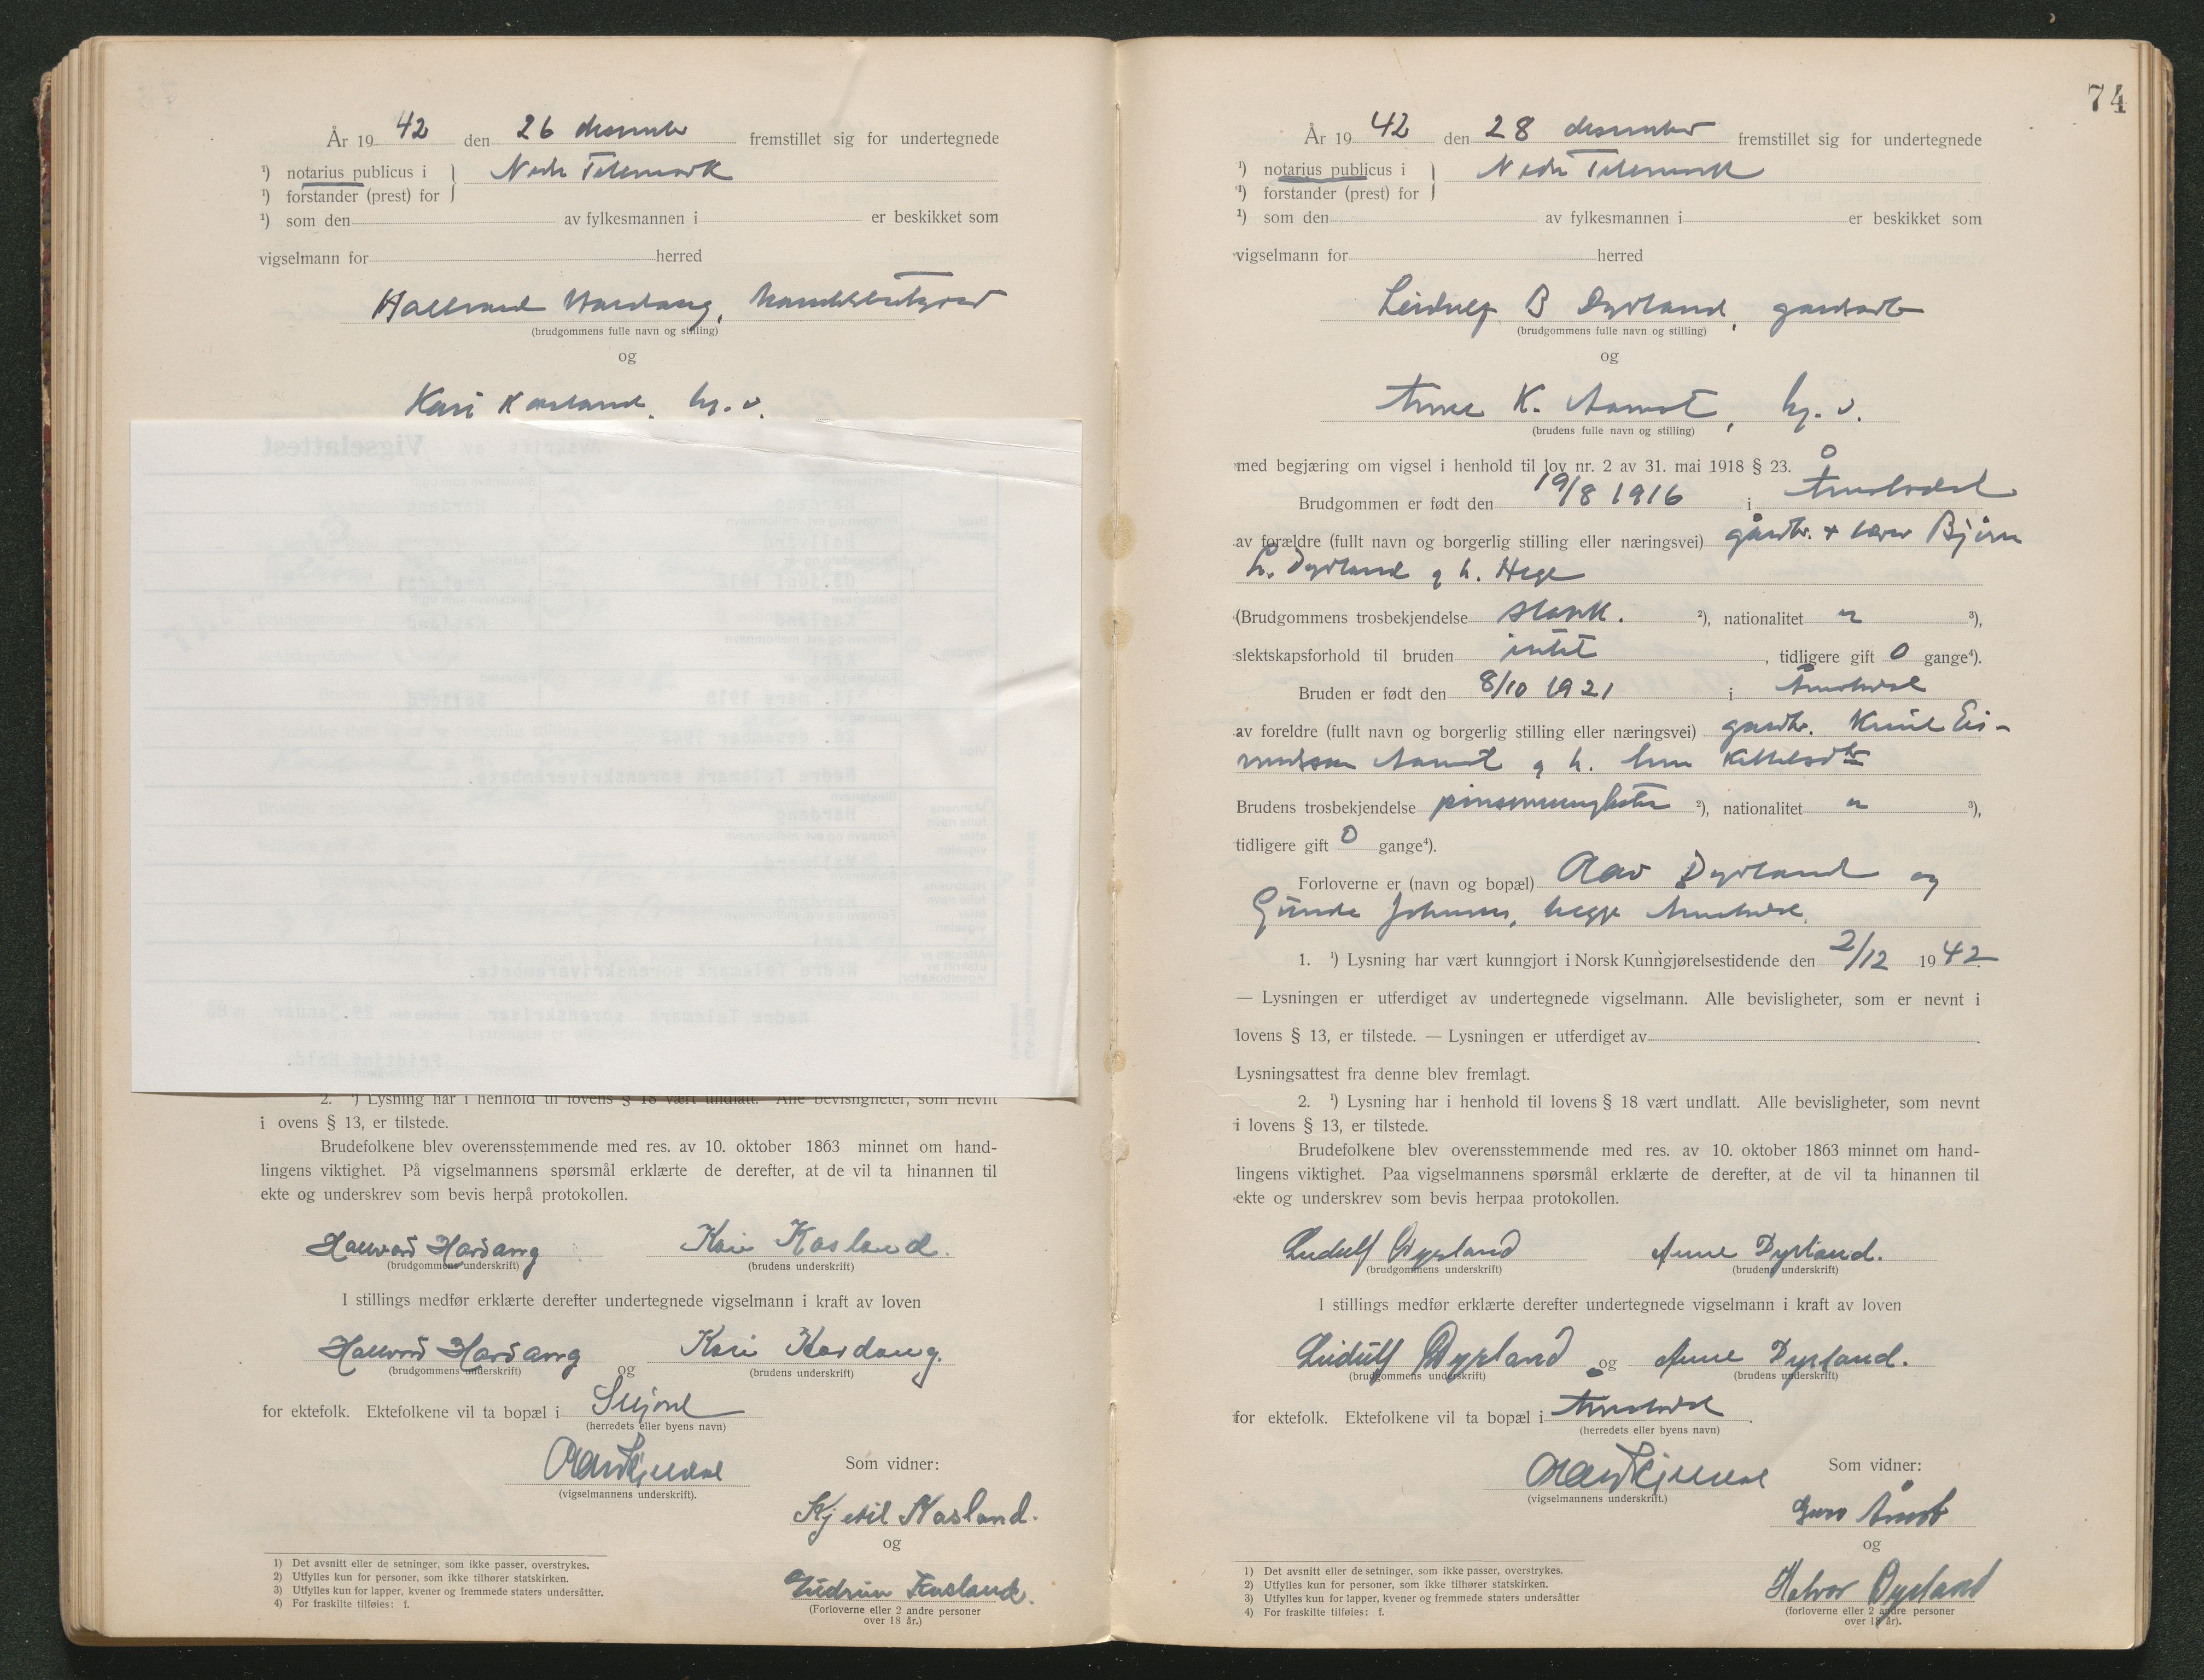 År 19 42 den 26 desember fremstillet sig for undertegnede
¹) notarius publicus i } Nedre Telemark
¹) forstander (prest) for
¹) som den av fylkesmannen i er beskikket som
vigselmann for herred
Hallvard Hardang,
(brudgommens fulle navn og stilling)
og
Kari Kasland, hj. v.
2. ¹) Lysning har i henhold til lovens § 18 vært undlatt. Alle bevisligheter, som nevnt
i ovens § 13, er tilstede.
Brudefolkene blev overensstemmende med res. av 10. oktober 1863 minnet om hand-
lingens viktighet. På vigselmannens spørsmål erklærte de derefter, at de vil ta hinannen til
ekte og underskrev som bevis herpå protokollen.
Hallvard Hardang Kari Kasland.
(brudgommens underskrift) (brudens underskrift)
I stillings medfør erklærte derefter undertegnede vigselmann i kraft av loven
Hallvard Hardang og Kari Hardang.
(brudgommens underskrift) (brudens underskrift)
for ektefolk. Ektefolkene vil ta bopæl i Seljord
(herredets eller byens navn)
(vigselmannens underskrift).
Som vidner:
Kjetil Kasland.
og
Gudrun Kasland.
(Forloverne eller 2 andre personer
over 18 år.)
1) Det avsnitt eller de setninger, som ikke passer, overstrykes.
2) Utfylles kun for personer, som ikke tilhører statskirken.
3) Utfylles kun for lapper, kvener og fremmede staters undersåtter.
4) For fraskilte tilføies: f.
74
År 19 42 den 28 desember fremstillet sig for undertegnede
¹) notarius publicus i } Nedre Telemark
¹) forstander (prest) for
¹) som den av fylkesmannen i er beskikket som
vigselmann for herred
Leidulf B Dyrland, gardsarb
(brudgommens fulle navn og stilling)
og
Anne K. Aamot, hj. v.
(brudens fulle navn og stilling)
med begjæring om vigsel i henhold til lov nr. 2 av 31. mai 1918 § 23.
Brudgommen er født den 19/8 1916 i Åmotsdal
av forældre (fullt navn og borgerlig stilling eller næringsvei) gårdbr. + lærer Bjørn
L. Dyrland og h. Hege
(Brudgommens trosbekjendelse statsk. ²), nationalitet n ³),
slektskapsforhold til bruden intet , tidligere gift 0 gange⁴).
Bruden er født den 8/10 1921 i Åmotsdal
av foreldre (fullt navn og borgerlig stilling eller næringsvei) gardbr. Knut
Aamot og h. Kittilsdtr
Brudens trosbekjendelse ²), nationalitet n ³),
tidligere gift 0 gange⁴).
Forloverne er (navn og bopæl) Olav Dyrland og
Gunde Johnsen, begge Åmotsdal.
1. ¹) Lysning har vært kunngjort i Norsk Kunngjørelsestidende den 2/12 1942.
— Lysningen er utferdiget av undertegnede vigselmann. Alle bevisligheter, som er nevnt i
lovens § 13, er tilstede. — Lysningen er utferdiget av
Lysningsattest fra denne blev fremlagt.
2. ¹) Lysning har i henhold til lovens § 18 vært undlatt. Alle bevisligheter, som nevnt
i lovens § 13, er tilstede.
Brudefolkene blev overensstemmende med res. av 10. oktober 1863 minnet om hand-
lingens viktighet. Paa vigselmannens spørsmål erklærte de derefter, at de vil ta hinannen til
ekte og underskrev som bevis herpaa protokollen.
Leidulf Dyrland Anne Dyrland.
(brudgommens underskrift) (brudens underskrift)
I stillings medfør erklærte derefter undertegnede vigselmann i kraft av loven
Leidulf Dyrland og Anne Dyrland.
(brudgommens underskrift) (brudens underskrift)
for ektefolk. Ektefolkene vil ta bopæl i Åmotsdal .
(herredets eller byens navn)
(vigselmannens underskrift.)
Som vidner:
Guro Åmot
og
Halvor Dyrland
(forloverne eller 2 andre personer
over 18 år).
1) Det avsnitt eller de setninger, som ikke passer, overstrykes.
2) Utfylles kun for personer, som ikke tilhører statskirken.
3) Utfylles kun for lapper, kvener og fremmede staters undersåtter
4) For fraskilte tilføies: f.